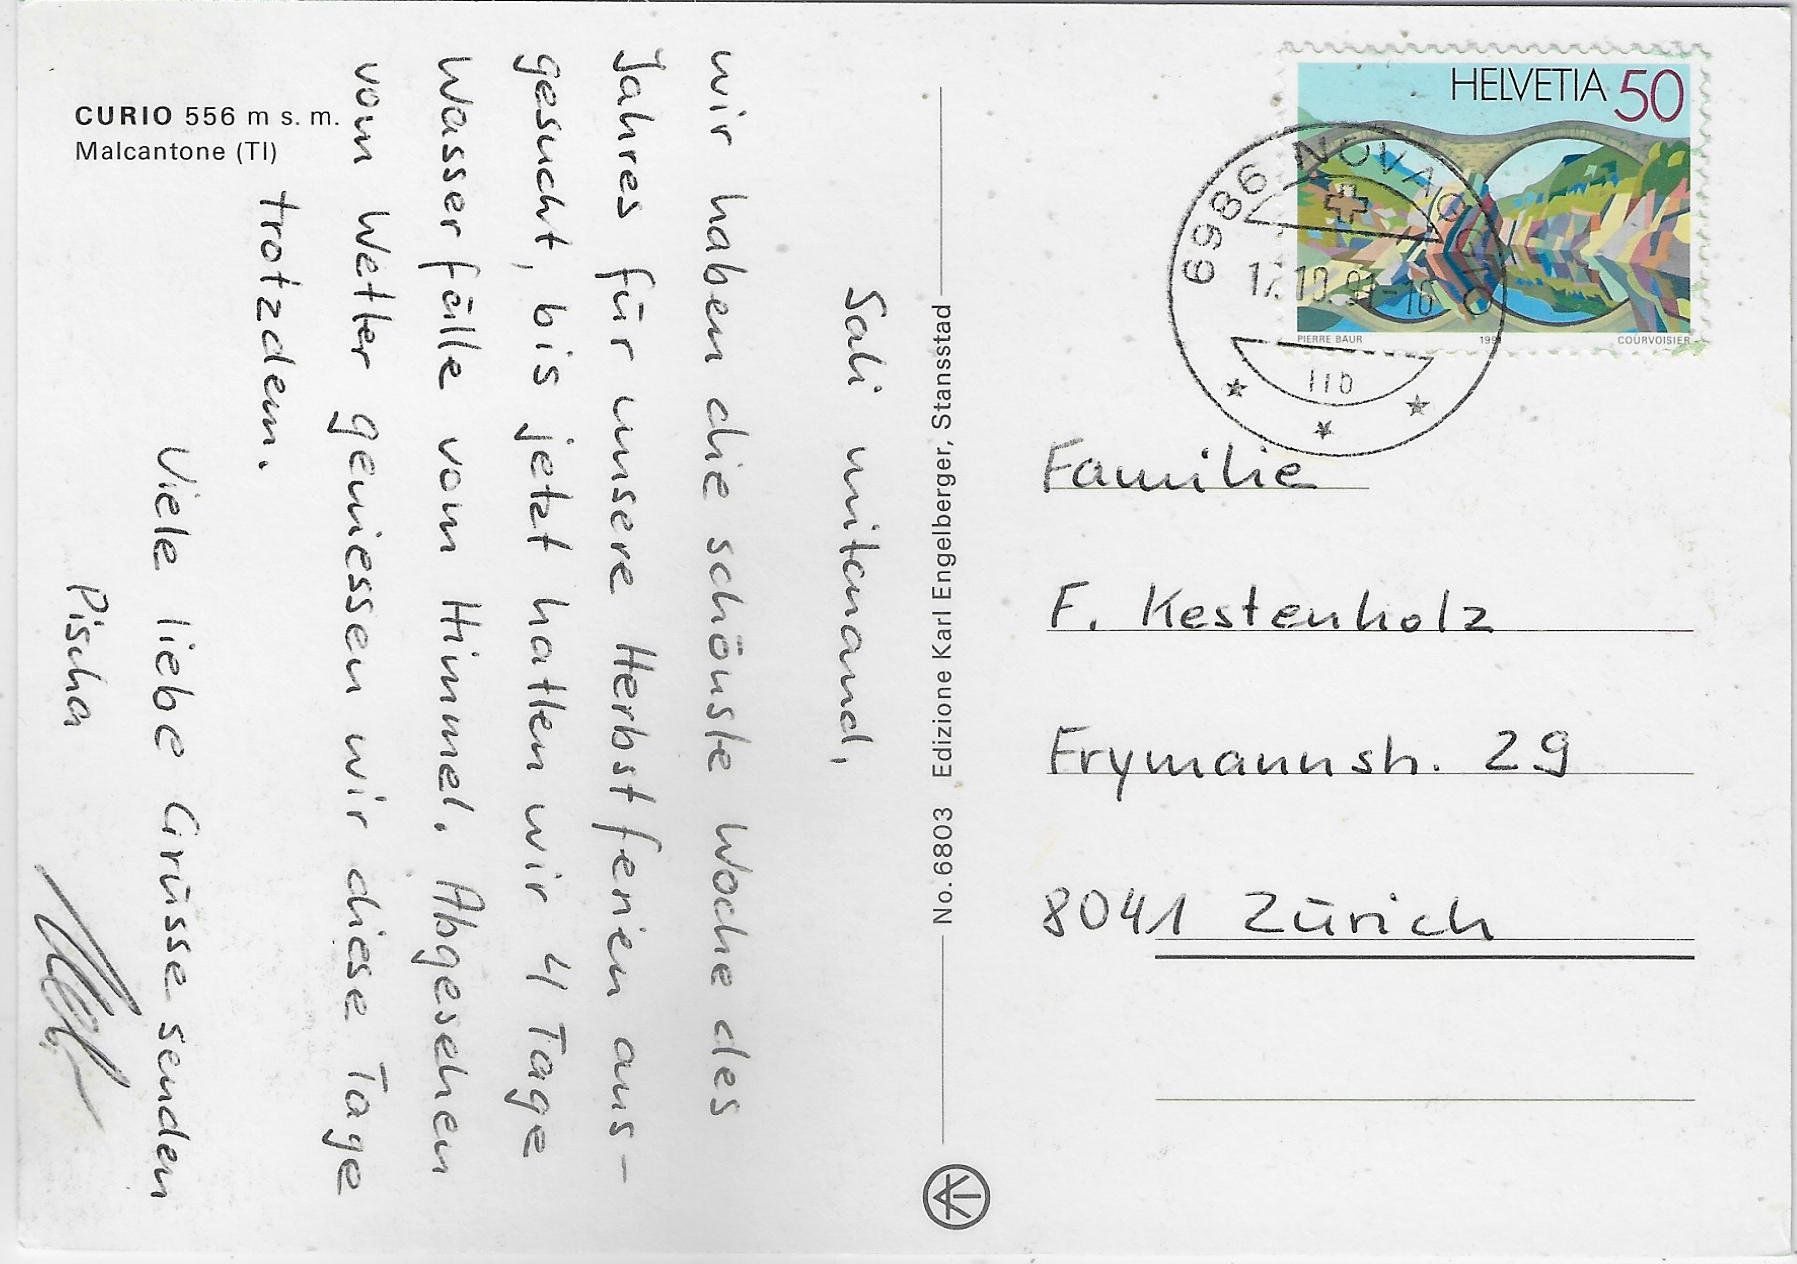 CURIO 556 m s. m.
Malcantone (TI)
Sali mitanand,
wir haben die schönste Woche des
Jahres für unsere Herbstferien aus-
gesucht, bis jetzt hatten wir 4 Tage
Wasserfälle vom Himmel. Abgesehen
vom Wetter geniessen wir diese Tage
trotzdem.
Viele liebe Grüsse senden
Pischa
No. 6803 Edizione Karl Engelberger, Stansstad
HELVETIA 50
PIERRE BAUR 1991 COURVOISIER
6986 NOVAGGIO
17.10.91-16
Familie
F. Kestenholz
Frymannstr. 29
8041 Zürich